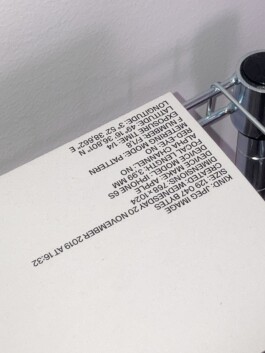 KIND: JPEG IMAGE
SIZE: 129 047 BYTES
CREATED: WEDNESDAY 20 NOVEMBER 2019 AT 16:32
DIMENSIONS: 768 x 1024
DEVICE MAKE: APPLE
DEVICE MODEL: IPHONE 6S
FOCAL LENGTH: 3,99 MM
ALPHA CHANNEL: NO
RED EYE: NO
METERING MODE: PATTERN
F NUMBER: F/1.8
EXPOSURE TIME: 1/4
LATITUDE: 49° 16' 36,801" N
LONGITUDE: 3° 52' 38,662" E